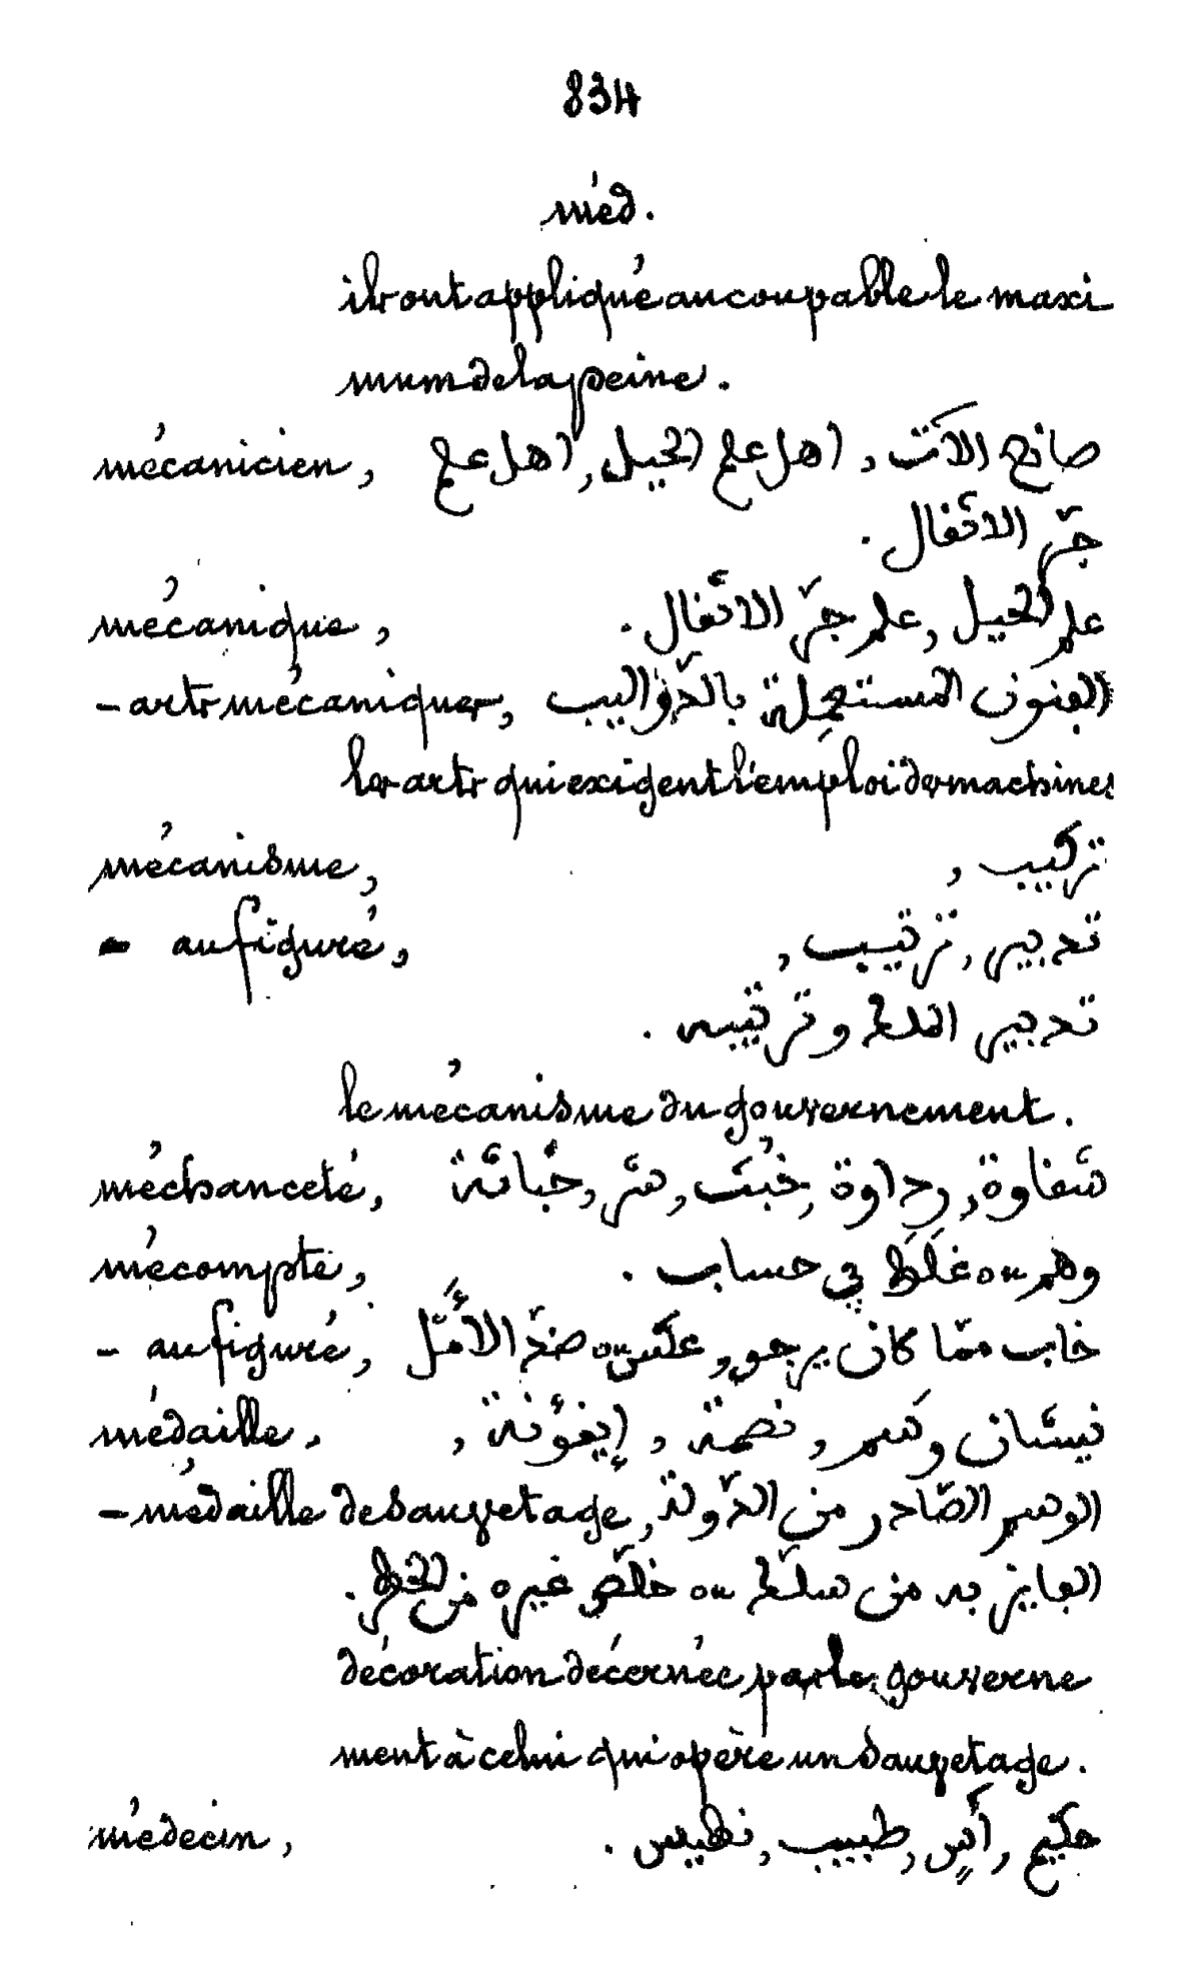 834
méd.
ils ont appliqué au coupable le maxi
mum de la peine.
mécanicien, صانع الآت, اهل علم الحيل, اهل علم
جرّ الاثقال.
mécanique, علم الحيل, علم جرّ الاثقال.
- arts mécaniques, الفنون المستعملة بالدّواليب
les arts qui exigent l'emploi de machines
mécanisme, تركيب,
- au figuré, تدبير, ترتيب,
تدبير الملك وترتيبه.
le mécanisme du gouvernement.
méchanceté, شقاوة, رداوة, خُبث, شرّ, خباثة
mécompte, وهم ou غَلَط في حساب.
- au figuré, خاب ممّا كان يرجو, عكس ou ضدّ الأمَل
médaille, نيشان, وسم, نصمة, إيغؤنة,
- médaille de sauvetage, الوسم الصّادر من الدّولة
الفايز به من سلّك ou خلّص غيره من الخطر.
décoration décernée par le gouverne
ment à celui qui opère un sauvetage.
médecin, حكيم, أَسٍ, طبيب, نطيس.